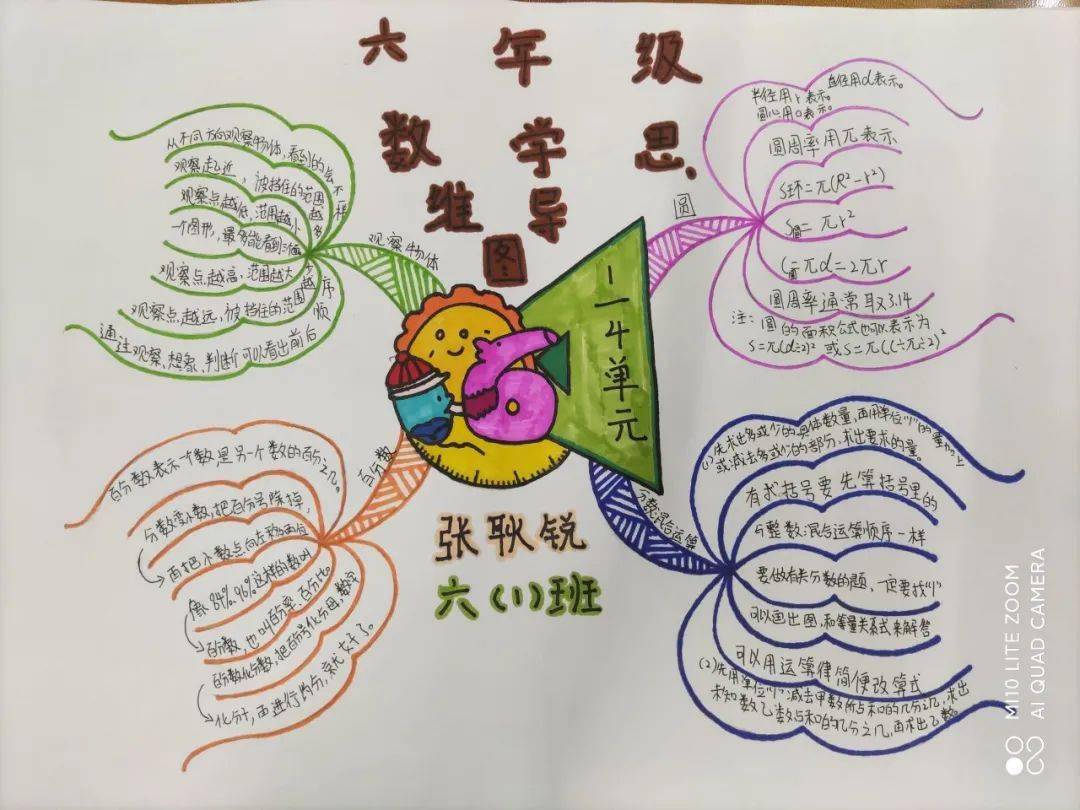 六年级
数学思
维导
图
1-4单元
观察物体
从不同方向观察物体,看到的会不一样
观察走近,被挡住的范围越多
观察点越低,范围越小
一个图形,最多能看到三面
观察点越高,范围越大
观察点越远,被挡住的范围越
通过观察、想象、判断可以看出前后顺序
圆
半径用r表示。直径用d表示。
圆心用o表示。
圆周率用π表示
S环=π(R²-r²)
S圆=πr²
C圆=πd=2πr
圆周率通常取3.14
注:圆的面积公式也可以表示为
S=π(d÷2)² 或S=π(C÷π÷2)²
百分数
百分数表示一个数是另一个数的百分之几。
分数变小数,把百分号除掉,
再把小数点向左移两位
像84%.96%这样的数叫
百分数,也叫百分率、百分比。
百分数化分数,把百分号化分母,数字
化分子,再进行约分,就大好了。
分数混合运算
(1)先求出多或少的具体数量,再用单位"1"的量加上
或减去多或少的部分,求出要求的量。
有求括号要先算括号里的
与整数混合运算顺序一样
要做有关分数的题,一定要找"1"
可以画出图,和等量关系式来解答
可以用运算律简便改算式
(2)先用单位"1"减去甲数所占和的几分之几,求出
未知数乙数占和的几分之几,再求出乙数。
张耿锐
六(1)班
MI 10 LITE ZOOM
AI QUAD CAMERA